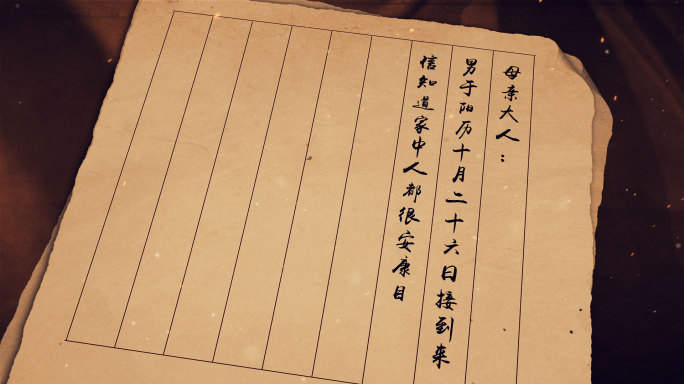 母亲大人：
男于阳历十月二十六日接到来
信知道家中人都很安康目